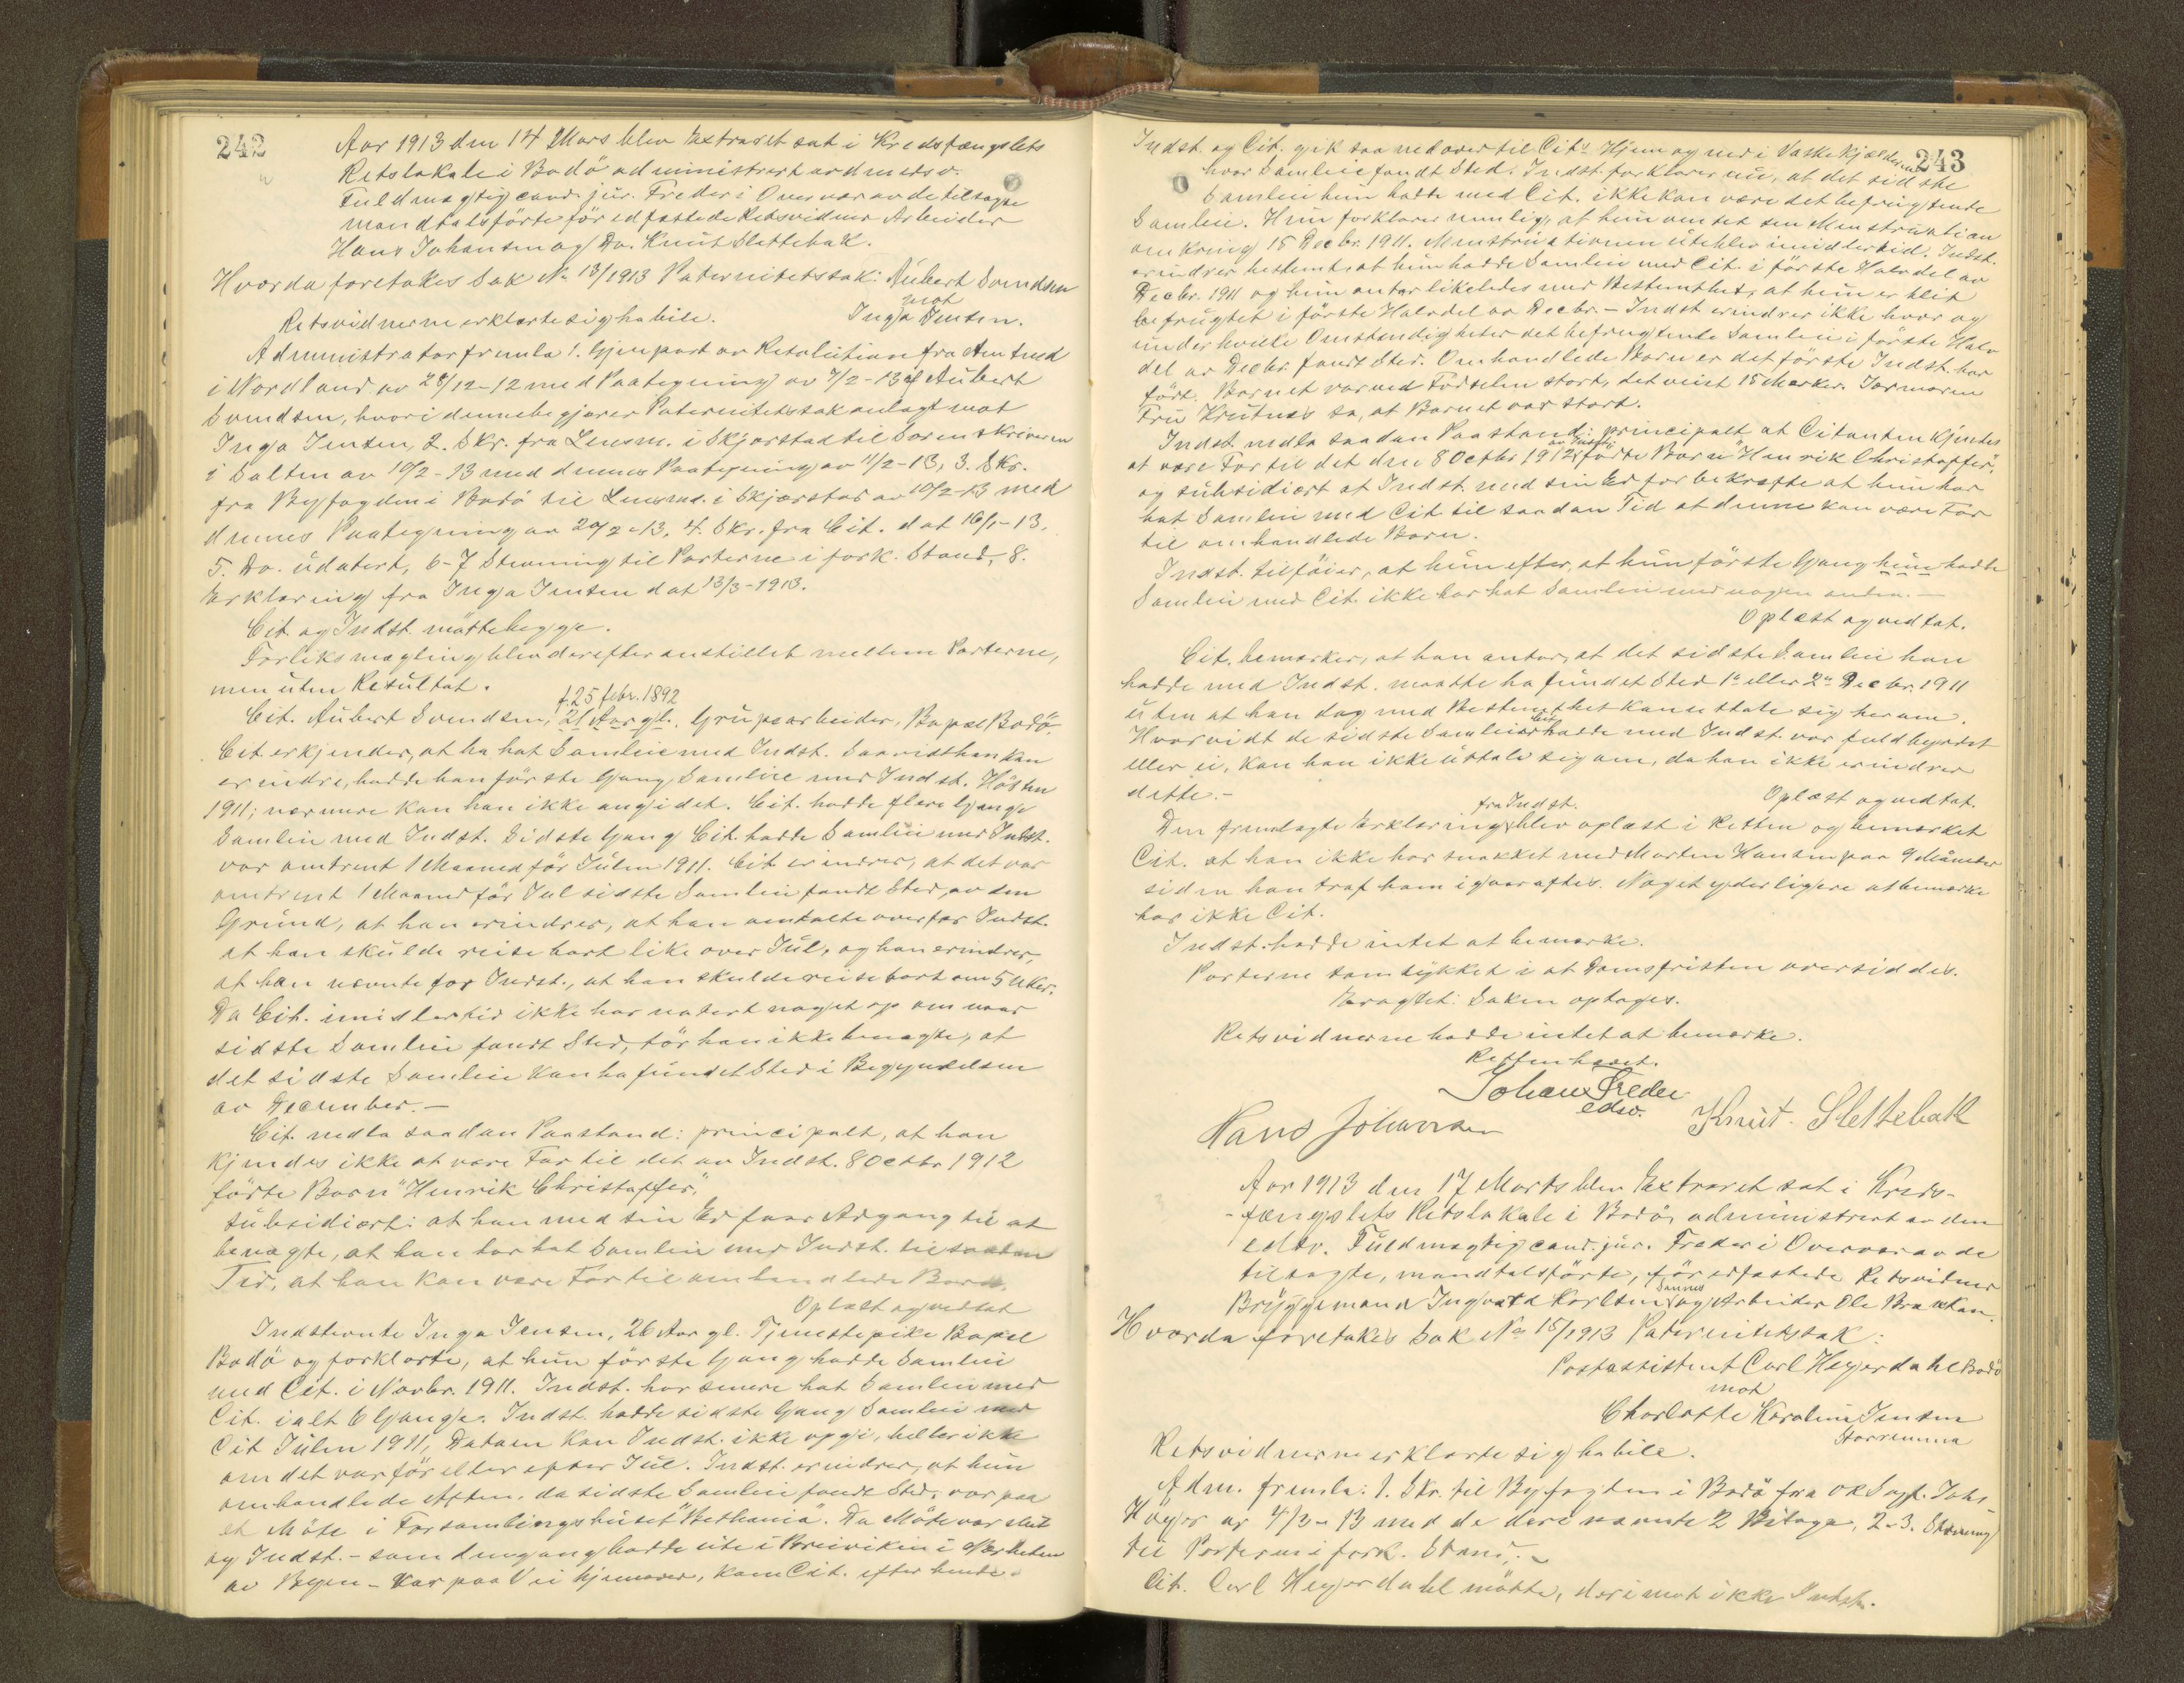 242
Aar 1913 den 14 Mars blev Extraret sat i Kredsfængslets
Retslokale i Bodö administrert av dmedsv.
Fuldmægtig cand. jur. Freder i Overvær av de tilsagte
mandtalsförte för edfæstede Retsvidner Arbeider
Hans Johansen og Do. Knut Slettebak.
Hvorda foretokes Sak No 13/1913 Paternitetssak: Aubert Svendsen
mot
Retsvidnerne erklærte sig habile. Inga Jensen.
Administrator fremla 1. Gjenpart av Resolution fra Amtmd
i Nordland av 28/12-12 med Paategning av 7/2-13 af Aubert
Svendsen, hvori denne begjærer Paternitetssak anlagt mot
Inga Jensen, 2. Skr. fra Lensm. i Skjerstad til Sorenskriveren
i Salten av 10/2-13 med dennes Paategning av 11/2-13, 3. Skr.
fra Byfogden i Bodö til Lensmd. i Skjerstad av 10/2-13 med
dennes Paategning av 20/2-13, 4. Skr. fra Cit. dat 16/1-13,
5. Do. udatert, 6-7 Stevning til Parterne i fork. Stand, 8.
Erklæring fra Inga Jensen dat 13/3-1913.
Cit og Indst. mötte begge.
Forliksmægling blev derefter anstillet mellem Parterne,
men uten Resultat.
f. 25 febr. 1892
Cit. Aubert Svendsen, 21 Aar gl. Grubearbeider, Bopæl Bodö.
Cit. erkjender, at ha hat Samleie med Indst. Saavidt han kan
erindre, hadde han förste Gang Samleie med Indst. Hösten
1911; nærmere kan han ikke angi det. Cit. hadde flere Gange
Samleie med Indst. Sidste Gang Cit. hadde Samleie med Indst.
var omtrent 1 Maaned för Julen 1911. Cit erindrer, at det var
omtrent 1 Maaned för Jul sidste Samleie fandt Sted, av den
Grund, at han erindrer, at han omtalte overfor Indst.
at han skulde reise bort like over Jul, og han erindrer,
at han nævnte for Indst., at han skulde reise bort om 5 Uker.
Da Cit. imidlertid ikke har notert noget op om naar
sidste Samleie fandt Sted, tör han ikke benegte, at
det sidste Samleie kan ha fundet Sted i Begyndelsen
av December.-
Cit. nedla saadan Paastand: principalt, at han
kjendes ikke at være Far til det av Indst. 8 Octbr 1912
födte Barn "Henrik Christoffer".
subsidiært: at han med sin Ed faar Adgang til at
benægte, at han har hat Samleie med Indst. til saadan
Tid, at han kan være Far til omhandlede Barn.
Oplæst og vedtat
Indstevnte Inga Jensen, 26 Aar gl. Tjenestepike Bopæl
Bodö og forklarte, at hun förste Gang hadde Samleie
med Cit. i Novbr. 1911. Indst. har senere hat Samleie med
Cit. ialt 6 Gange. Indst. hadde sidste Gang Samleie med
Cit Julen 1911, Datoen kan Indst. ikke opgi, heller ikke
om det var för eller efter Jul. Indst. erindrer, at hun
omhandlede Aften, da sidste Samleie fandt Sted, var paa
et Möte i Forsamlingshuset "Bethania". Da Möte var slut
og Indst. - som dengang hadde ute i Breiviken i Nærheten
av Byen - var paa Vei hjemover, kom Cit. efter hende.
243
Indst. og Cit. gik saa nedover til Cits Hjem og ned i Vaskekjælderen
hvor Samleie fandt Sted. Indst. forklarer nu, at det sidste
Samleie hun hadde med Cit. ikke kan være det befrugtende
Samleie. Hun forklarer nemlig, at hun ventet sin Menstruation
omkring 15 Decbr. 1911. Menstruationen uteblev imidlertid. Indst.
erindrer bestemt, at hun hadde Samleie med Cit. i förste Halvdel av
Decbr. 1911 og hun antar likeledes med Bestemthet, at hun er blit
befrugtet i förste Halvdel av Decbr. - Indst erindrer ikke hvor og
under hvilke Omstændigheter det befrugtende Samleie i förste Halv
del av Decbr. fandt Sted. Omhandlede Barn er det förste Indst. har
födt. Barnet var ved Födselen stort, det veiet 15 Marker. Jormoren
Fru Krutnes sa, at Barnet var stort.
Indst. nedla saadan Paastand: principalt at Citanten kjendes
av Indst.
at være Far til det den 8 Octbr 1912 födte Barn "Henrik Christoffer",
og subsidiært at Indst. med sin Ed faar bekræfte at hun har
hat Samleie med Cit til saadan Tid at denne kan være Far
til omhandlede Barn.
Indst. tilföier, at hun efter, at hun förste Gang hun hadde
Samleie med Cit. ikke har hat Samleie med nogen anden.-
Oplæst og vedtat.
Cit. bemerker, at han antar, at det sidste Samleie han
hadde med Indst. maatte ha fundet Sted 1ste eller 2den Decbr. 1911
uten at han dog med Bestemthet kan uttale sig herom.
Cit
Hvorvidt de sidste Samleier hadde med Indst. var fuldbyrdet
eller ei, kan han ikke uttale sig om, da han ikke erindrer
dette.- Oplæst og vedtat.
fra Indst.
Den fremlagte Erklæring blev oplæst i Retten og bemerket
Cit. at han ikke har snakket med Morten Hansen paa 9 Maaneder
siden han traf ham igaaraftes. Noget yderligere at bemerke
har ikke Cit.
Indst. hadde intet at bemerke.
Parterne samtykket i at Domsfristen oversiddes.
Eragtet: Saken optages.
Retsvidnerne hadde intet at bemerke.
Retten hævet.
Johan Freder
edsv.
Hans Johansen Knut. Slettebakk
Aar 1913 den 17 Marts blev Extraret sat i Kreds-
-fængslets Retslokale i Bodö, administrert av den
edsv. Fuldmægtig cand. jur. Freder i Overvær av de
tilsagte, mandtalsförte, för edfæstede Retsvidner
Sannes
Bryggemand Ingvard Karlsen og Arbeider Ole Brækkan.
Hvorda foretokes Sak No 15/1913 Paternitetssak:
Postassistent Carl Heyerdahl Bodö
mot
Charlotte Karoline Jensen
Storremma
Retsvidnerne erklærte sig habile.
Adm. fremla: 1. Skr. til Byfogden i Bodö fra OR Sagf. Johs
Höyer av 4/3-13 med de deri nævnte 2 Bilage, 2-3. Stævning
til Parterne i fork. Stand.-
Cit. Carl Heyerdahl mötte, derimot ikke Indst.